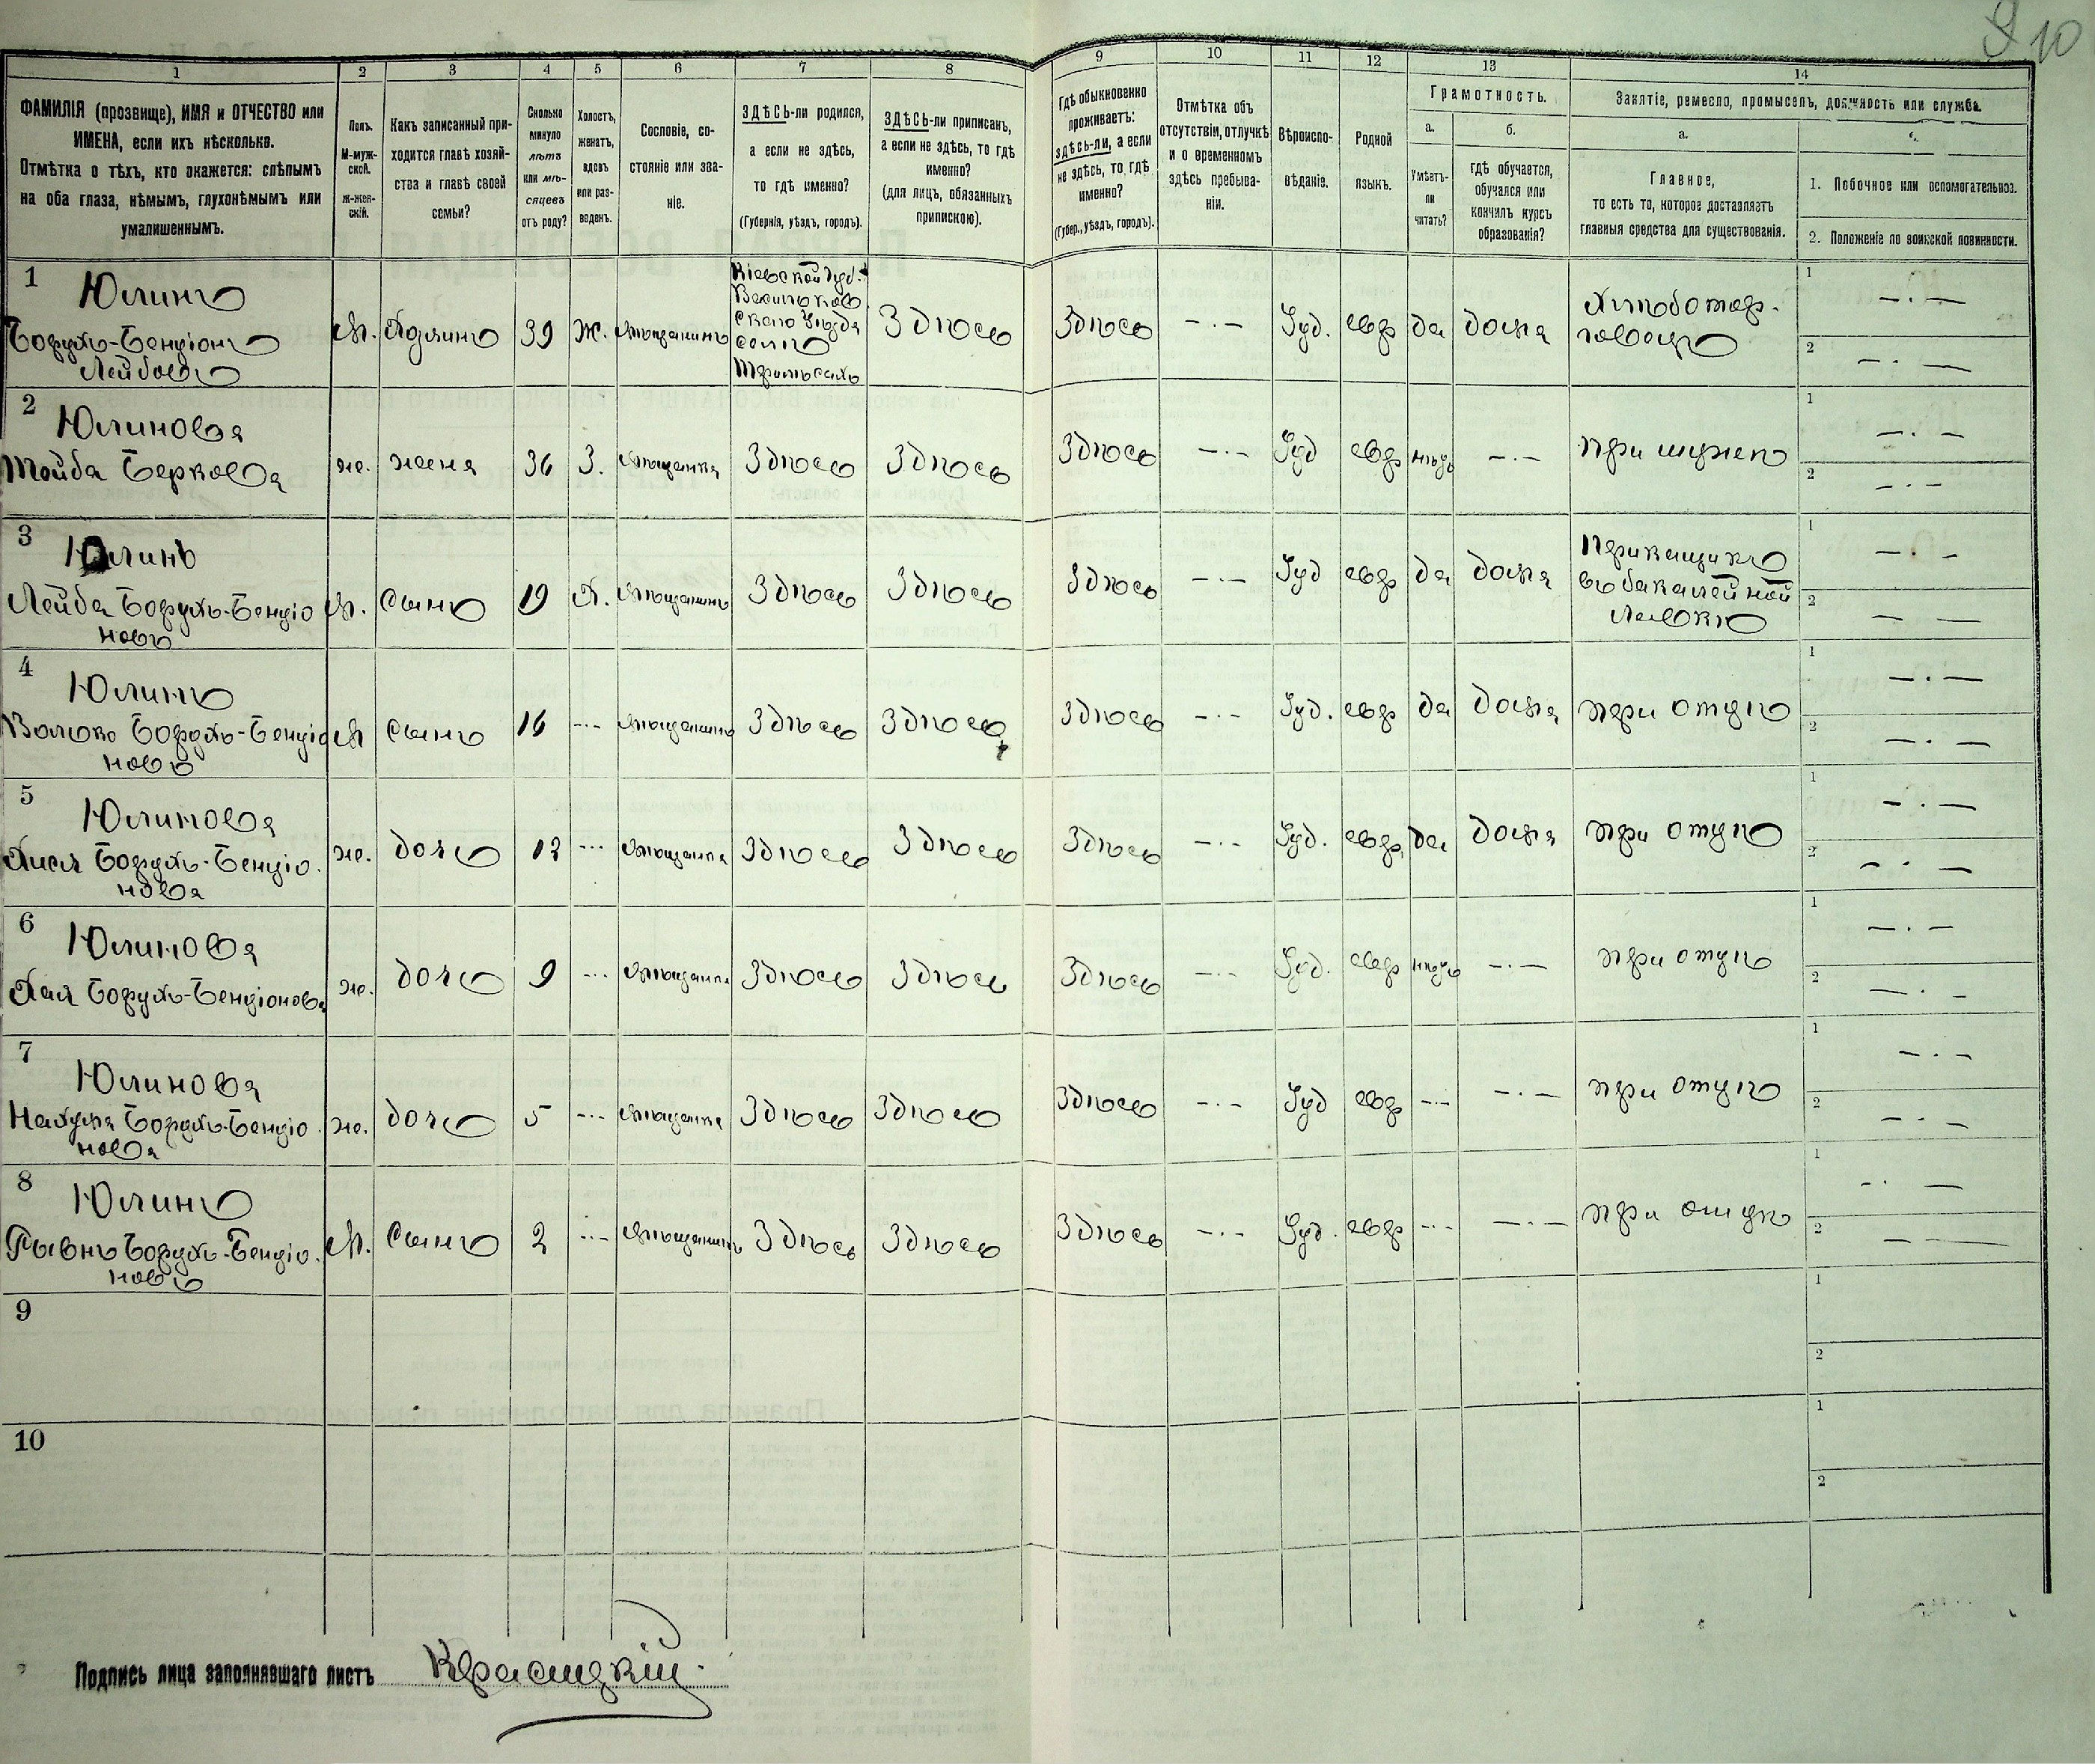 9 10
1 2 3 4 5 6 7 8 9 10 11 12 13 14
ФАМИЛІЯ (прозвище), ИМЯ и ОТЧЕСТВО или
ИМЕНА, если ихъ нѣсколько.
Отмѣтка о тѣхъ, кто окажется: слѣпымъ
на оба глаза, нѣмымъ, глухонѣмымъ или
умалишеннымъ.
Полъ.
М-муж-
ской.
ж-жен-
скій.
Какъ записанный при-
ходится главѣ хозяй-
ства и главѣ своей
семьи?
Сколько
минуло
лѣтъ
или мѣ-
сяцевъ
отъ роду?
Холостъ,
женатъ,
вдовъ
или раз-
веденъ.
Сословіе, со-
стояніе или зва-
ніе.
ЗДѢСЬ-ли родился,
а если не здѣсь,
то гдѣ именно?
(Губернія, уѣздъ, городъ).
ЗДѢСЬ-ли приписанъ,
а если не здѣсь, то гдѣ
именно?
(для лицъ, обязанныхъ
припискою).
Гдѣ обыкновенно
проживаетъ:
здѣсь-ли, а если
не здѣсь, то гдѣ
именно?
(Губер., уѣздъ, городъ).
Отмѣтка объ
отсутствіи, отлучкѣ
и о временномъ
здѣсь пребыва-
ніи.
Вѣроиспо-
вѣданіе.
Родной
языкъ.
Грамотность.
а.
Умѣетъ-
ли
читать?
б.
гдѣ обучается,
обучался или
кончилъ курсъ
образованія?
Занятіе, ремесло, промыселъ, должность или служба.
а.
Главное,
то есть то, которое доставляетъ
главныя средства для существованія.
1. Побочное или вспомогательное.
2. Положеніе по воинской повинности.
1
Юлинъ
Борухъ-Бенціонъ
Лейбовъ
М. Хозяинъ 39 Ж. Мѣщанинъ
Кіевской Губ.
Васильков
скаго Уѣзда
Здѣсь Здѣсь —·— Іуд. евр да дома
Хлѣботор-
говецъ
1 —·—
2 —·—
2
Юлинова
Тойба Беркова
же. жена 36 З. Мѣщанка Здѣсь Здѣсь Здѣсь —·— Іуд евр нѣтъ —·— при мужѣ
1 —·—
2 —·—
3
Юлинъ
Лейба Борухъ-Бенціо
новъ
М. Сынъ 19 Х. Мѣщанинъ Здѣсь Здѣсь Здѣсь —·— Іуд евр да дома
Прикащикъ
въ бакалейной
Лавкѣ
1 —·—
2 — —
4
Юлинъ
Волько Борухъ-Бенціо
новъ
М сынъ 16 —·— Мѣщанинъ Здѣсь Здѣсь Здѣсь —·— Іуд. евр да дома при отцѣ
1 —·—
2 —·—
5
Юлинова
Борухъ-Бенціо
нова
же. дочь 12 —·— Мѣщанка Здѣсь Здѣсь Здѣсь —·— Іуд. евр да дома при отцѣ
1 —·—
2 —·—
6
Юлинова
Хая Борухъ-Бенціонова
же. дочь 9 —·— Мѣщанка Здѣсь Здѣсь Здѣсь —·— Іуд. евр нѣтъ —·— при отцѣ
1 —·—
2 —·—
7
Юлинова
Нахума Борухъ-Бенціо
нова
же. дочь 5 —·— Мѣщанка Здѣсь Здѣсь Здѣсь —·— Іуд евр —·— —·— при отцѣ
1 —·—
2 —·—
8
Юлинъ
Борухъ-Бенціо
новъ
М. Сынъ 2 —·— Мѣщанинъ Здѣсь Здѣсь Здѣсь —·— Іуд. евр —·— —·— при отцѣ
1 —·—
2 — —
9
1
2
10
1
2
Подпись лица заполнявшаго листъ Красицкій